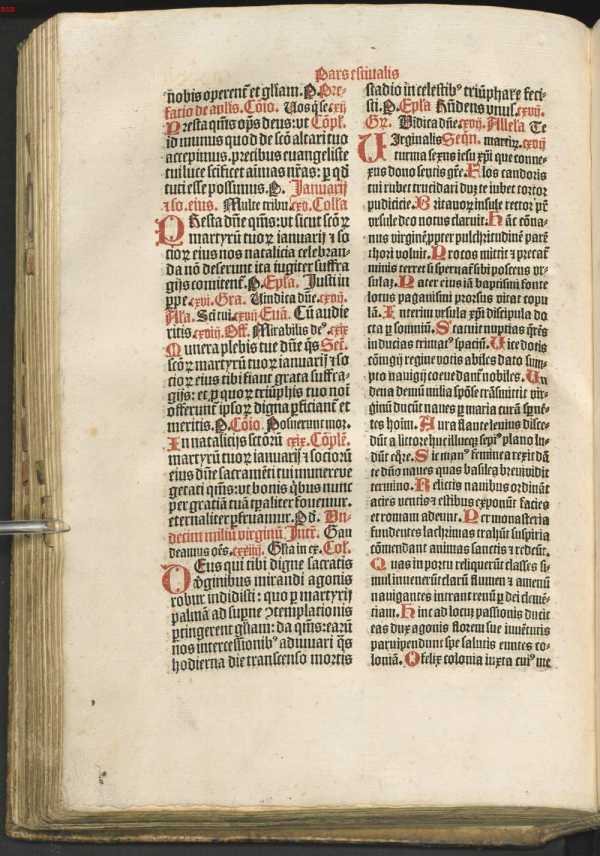 Pars estiualis
nobis operent᷑ et gl̃iam. P. Pre-
fatio de apl̃is. Cõio. Uos q̃ se. xij
Presta qm̃s op̃s deus: vt Cõpl̃.
id munus quod de scõ altari tuo
accepimus. precibus euangeliste
tui luce sc̃ificet aĩmas nr̃as: ꝑ qđ
tuti esse possimus. P. Januarij
⁊ so. eius. Multe tribu. xv. Coll̃a
PResta dñe qm̃s: vt sicut scõꝝ
martyrũ tuoꝝ ianuarij ⁊ so
cioꝝ eius nos natalicia celebran-
da nõ deserunt ita iugiter suffra
gijs comitent᷑. P. Ep̃la. Justi in
ꝑpe. xvi. Gra. Uindica dñe. xvij.
All̃a. Sc̃i tui. xvij Euã. Cũ audie
ritis. xviij. Off. Mirabilis deꝰ. xix
Munera plebis tue dñe q̃s Sec̃.
scõꝝ martyrũ tuoꝝ ianuarij ⁊ so
cioꝝ eius tibi fiant grata suffra-
gijs: et ꝑ quoꝝ triũphis tuo noĩ
offerunt᷑ ipsoꝝ digna ꝑficiant᷑ et
meritis. P. Cõio. Posuerunt mor.
In natalicijs sctõrũ xix. Cõplẽ.
martyrũ tuoꝝ ianuarij ⁊ socioꝝ
eius dñe sacramẽti tui munere ve
getati qm̃s: vt bonis q̃bus nunc
per gratiã tuã tp̃aliter fouemur.
eternaliter ꝑfruamur. P. Un-
decim miliũ virginũ. Intr̃. Gau
deamus oẽs. xxiiij. Gl̃ia in ex. Col̃.
DEus qui tibi digne sacratis
virginibus mirandi agonis
robur indidisti: quo ꝑ martyrij
palmã ad supne ꝯtemplationis
ꝑtingerent gl̃iam: da qm̃s: earũ
nos intercessionibꝰ adiuuari q̃s
hodierna die transcenso mortis
stadio in celestibꝰ triũphare feci-
sti. P. Ep̃la Hñdens vnus. xvij.
Gr̃. Uidica dñe. xvij. Allel̃a Te
UIrginalis Seq̃n. martirꝝ. xvij
turma sexus iesu xp̃i que conne-
xus dono sentis gr̃e. Flos candoris
tui rubet trucidari dux te iubet tortor
pudicicie. Britãnoꝝ insule rector pr̃
vrsule deo notus claruit. Hãc cõna-
nus virginẽ ꝓpter pulchritudinẽ parẽ
thori voluit. Procos mittit ⁊ precat᷑
minis terret si spernat᷑ sibi poscens vr-
sulaꝫ. Pater eius iã baptismi fonte
lotus paganismi prorsus vitat copu
lã. Interim vrsula xp̃i discipula do
cta ꝑ somniũ. Statuit nuptias q̃rẽs
inducias trimatꝰ spaciũ. Uice dotis
cõiugij regine votis abiles dato sum-
pto nauigij coeue dant᷑ nobiles. Un
dena demũ milia spõse trãsmittit vir-
ginũ ducũt naues ꝑ maria curã spnẽ-
tes hoĩm. Aura flante leuius disce-
dũt a littore huc illucqꝫ sepiꝰ plano lu-
dũt eq̃re. Sic manꝰ feminea rexit dã
te dño naues quas basilea breui vidit
termino. Relictis nauibus ordinãt
acies ventis ⁊ estibus exponũt facies
et romam adeunt. Per monasteria
fundentes lachrimas trahũt suspiria
cõmendant animas sanctis ⁊ redeũt.
Quas in portu reliquerũt classes si-
mul inuenerũt clarũ flumen ⁊ amenũ
nauigantes intrant renũ ꝑ dei clemẽ-
tiam. Hinc ad locuꝫ passionis ducit
eas dux agonis florem sue iuuẽtutis
paruipendunt spe salutis euntes co-
loniã. O felix colonia iuxta cuiꝰ me